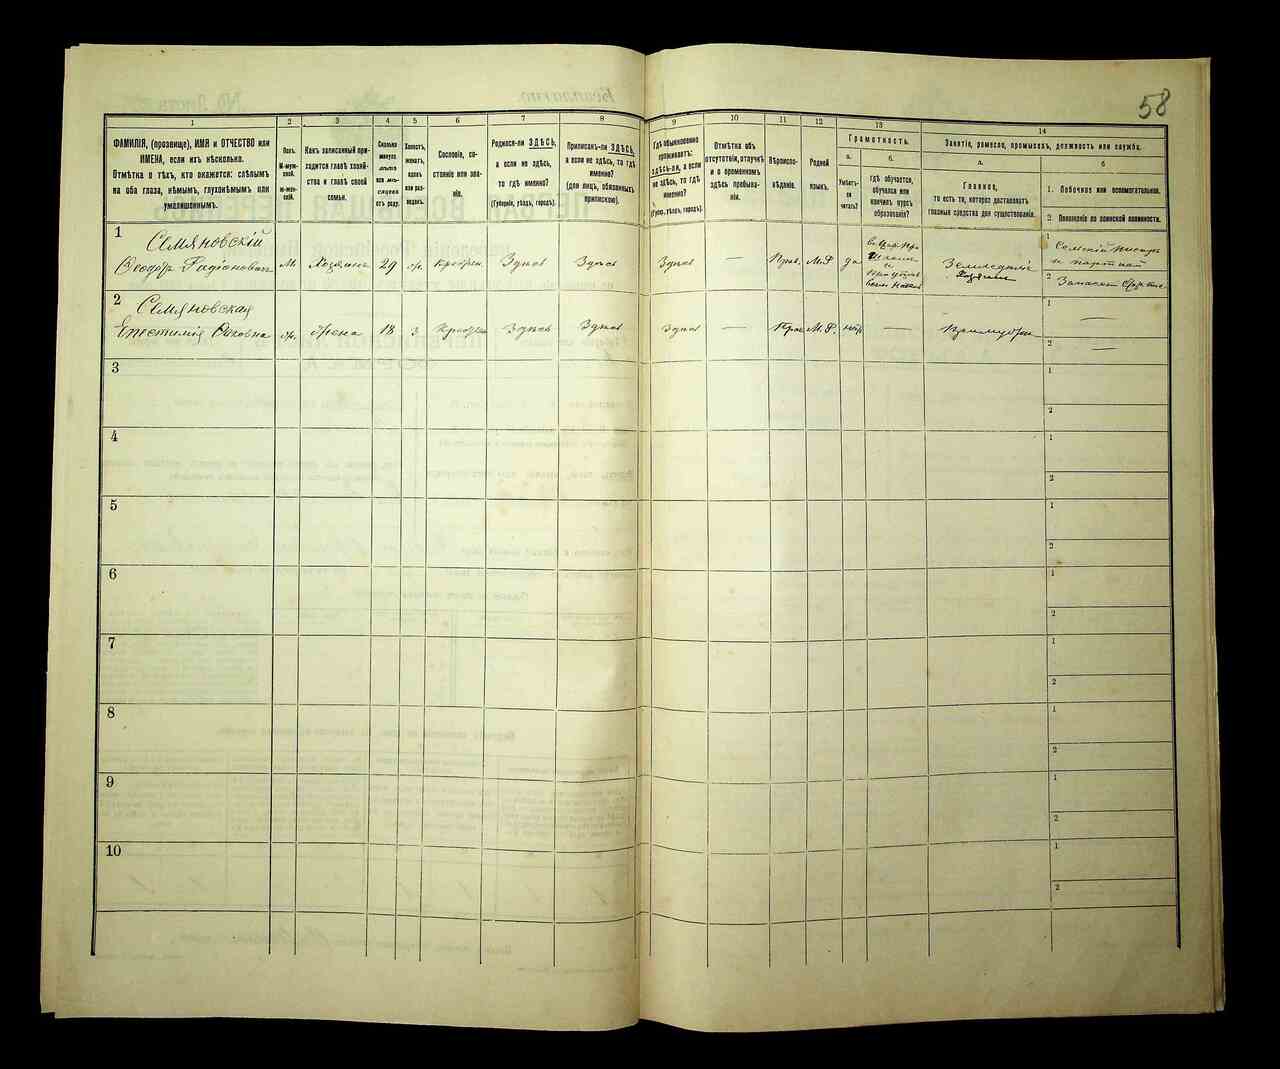 58
1
2
3
4
5
6
7
8
9
10
11
12
13
14
ФАМИЛІЯ, (прозвище), ИМЯ и ОТЧЕСТВО или
ИМЕНА, если ихъ нѣсколько.
Отмѣтка о тѣхъ, кто окажется: слѣпымъ
на оба глаза, нѣмымъ, глухонѣмымъ или
умалишеннымъ.
Полъ.
М-муж-
ской.
Ж-жен-
скій.
Какъ записанный при-
ходится главѣ хозяй-
ства и главѣ своей
семьи.
Сколько
минуло
лѣтъ
или мѣ-
сяцевъ
отъ роду.
Холостъ,
женатъ,
вдовъ
или раз-
веденъ.
Сословіе, со-
стояніе или зва-
ніе.
Родился-ли ЗДѢСЬ,
а если не здѣсь,
то гдѣ именно?
(Губернія, уѣздъ, городъ).
Приписанъ-ли ЗДѢСЬ,
а если не здѣсь, то гдѣ
именно?
(для лицъ, обязанныхъ
припискою).
Гдѣ обыкновенно
проживаетъ:
здѣсь-ли, а если
не здѣсь, то гдѣ
именно?
(Губер., уѣздъ, городъ).
Отмѣтка объ
отсутствіи, отлучкѣ
и о временномъ
здѣсь пребыва-
ніи.
Вѣроиспо-
вѣданіе.
Родной
языкъ.
Грамотность.
а.
Умѣетъ-
ли
читать?
б.
гдѣ обучается,
обучался или
кончилъ курсъ
образованія?
Занятіе, ремесло, промыселъ, должность или служба.
а.
Главное,
то есть то, которое доставляетъ
главныя средства для существованія.
б
1. Побочное или вспомогательное.
2 Положеніе по воинской повинности.
1
Семяновскій
Ѳеодоръ Радіоновичъ М. Хозяинъ 29 Здѣсь Здѣсь Здѣсь — Прав. М.Р. да
Школѣ
и
Земледѣліе
Хозяинъ
1
Сельскій писарь
и портной
2
2
Семяновская
ж. Жена 18 з Здѣсь Здѣсь Здѣсь — Прав М.Р. нѣтъ —
1
—
2
—
3
1
2
4
1
2
5
1
2
6
1
2
7
1
2
8
1
2
9
1
2
10
1
2